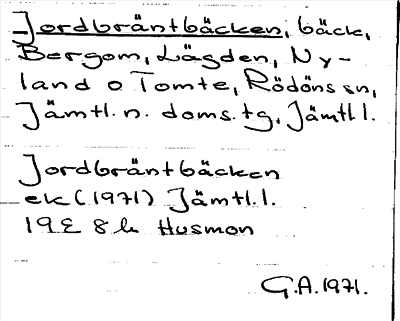 Jordbräntbäcken, bäck,
Bergom, Lägden, Ny-
land o Tomte, Rödöns sn,
Jämtl. n. doms.tg, Jämtl l.
Jordbräntbäcken
ek (1971) Jämtl. l.
19E 8h Husmon
G.A. 1971.